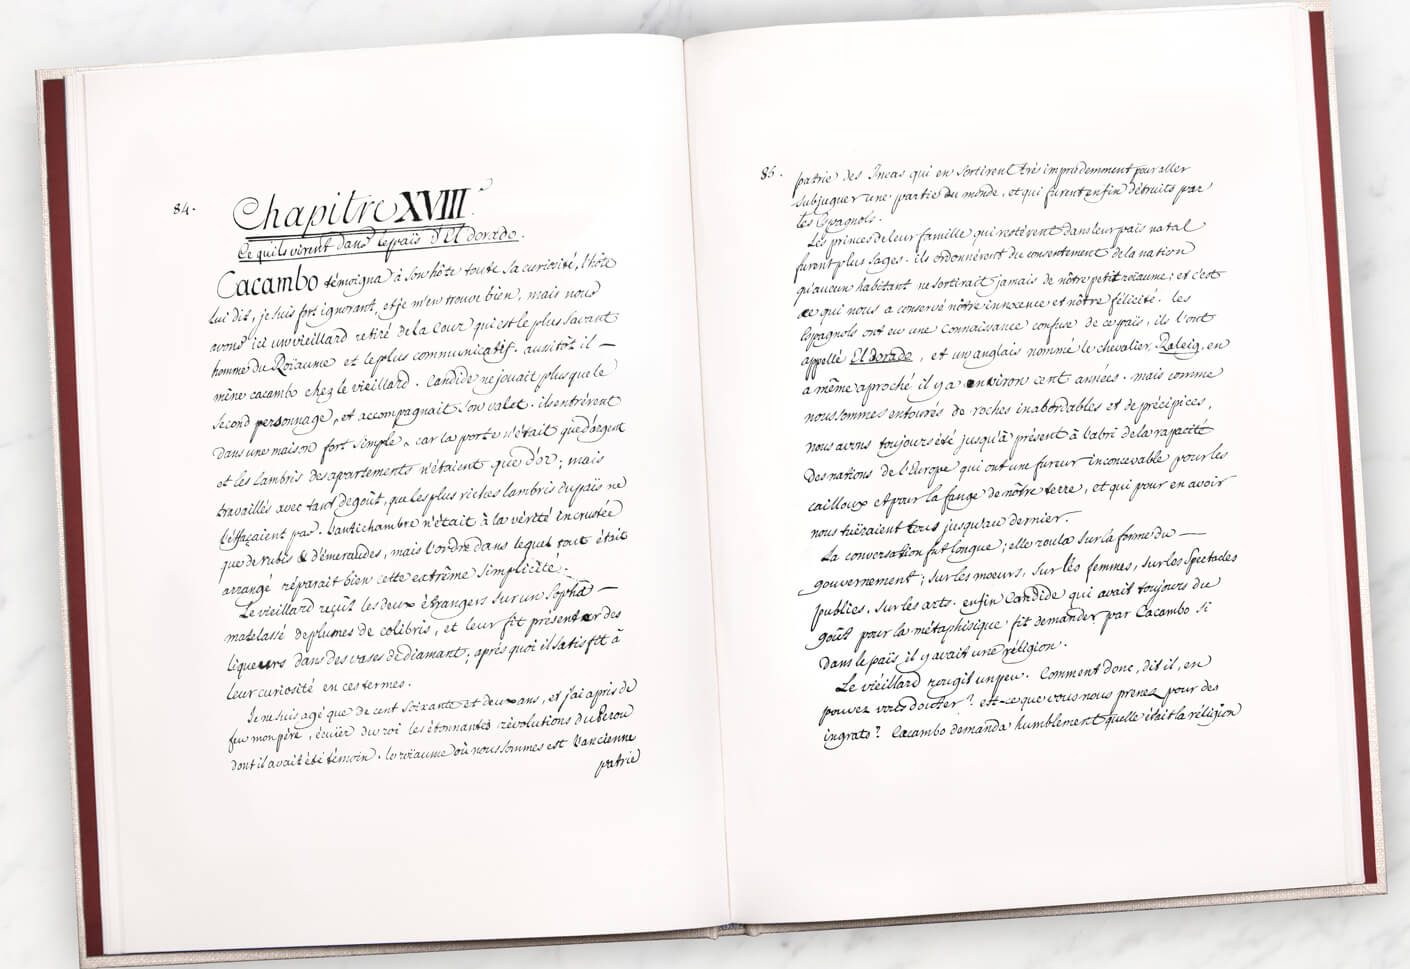 84.
Chapitre XVIII.e
Ce qu'ils virent dans le païs d'El dorado.
Cacambo témoigna à son hôte toute sa curiosité, l'hôte
lui dit, je suis fort ignorant, et je m'en trouve bien, mais nous
avons ici un vieillard retiré de la Cour qui est le plus savant
homme du Roïaume et le plus communicatif. aussitôt il —
mène cacambo chez le vieillard. Candide ne jouait plus que le
second personnage, et accompagnait son valet. ils entrèrent
dans une maison fort simple, car la porte n'était que d'argent
et les lambris des apartements n'étaient que d'or; mais
travaillés avec tant de goût, que les plus riches lambris du païs ne
l'effaçaient pas. l'antichambre n'était à la vérité incrustée
que de rubis & d'émeraudes, mais l'ordre dans lequel tout était
arrangé réparait bien cette extrême simplicité.
Le vieillard reçut les deux étrangers sur un Sopha —
matelassé de plumes de colibris, et leur fit présenter des
liqueurs dans des vases de diamant; après quoi il satisfit à
leur curiosité en ces termes.
Je ne suis agé que de cent soixante et douze ans, et j'ai apris de
feu mon père, écuïer du roi les étonnantes révolutions du Perou
dont il avait été témoin. le roïaume où nous sommes est l'ancienne
patrie
85.
patrie des Incas qui en sortirent très imprudemment pour aller
subjuguer une partie du monde, et qui furent enfin détruits par
les Espagnols.
Les princes de leur famille qui restèrent dans leur païs natal
furent plus sages. ils ordonnèrent du consentement de la nation
qu'aucun habitant ne sortirait jamais de nôtre petit roïaume; et c'est
ce qui nous a conservé nôtre innocence et nôtre félicité. les
Espagnols ont eu une connaissance confuse de ce païs, ils l'ont
appellé El Dorado, et un anglais nommé le chevalier Raleig, en
a même aproché il y a environ cent années. mais comme
nous sommes entourés de roches inabordables et de précipices,
nous avons toujours été jusqu'à présent à l'abri de la rapacité
des nations de l'Europe qui ont une fureur inconcevable pour les
cailloux et pour la fange de nôtre terre, et qui pour en avoir
nous tueraient tous jusqu'au dernier.
La conversation fut longue; elle roula sur la forme du —
gouvernement; sur les moeurs, sur les femmes, sur les Spectacles
publics, sur les arts. enfin Candide qui avait toujours du
goût pour la métaphisique fit demander par Cacambo si
dans le païs il y avait une réligion.
Le vieillard rougit un peu. Comment donc, dit il, en
pouvez vous douter? est-ce que vous nous prenez pour des
ingrats? Cacambo demanda humblement quelle était la réligion